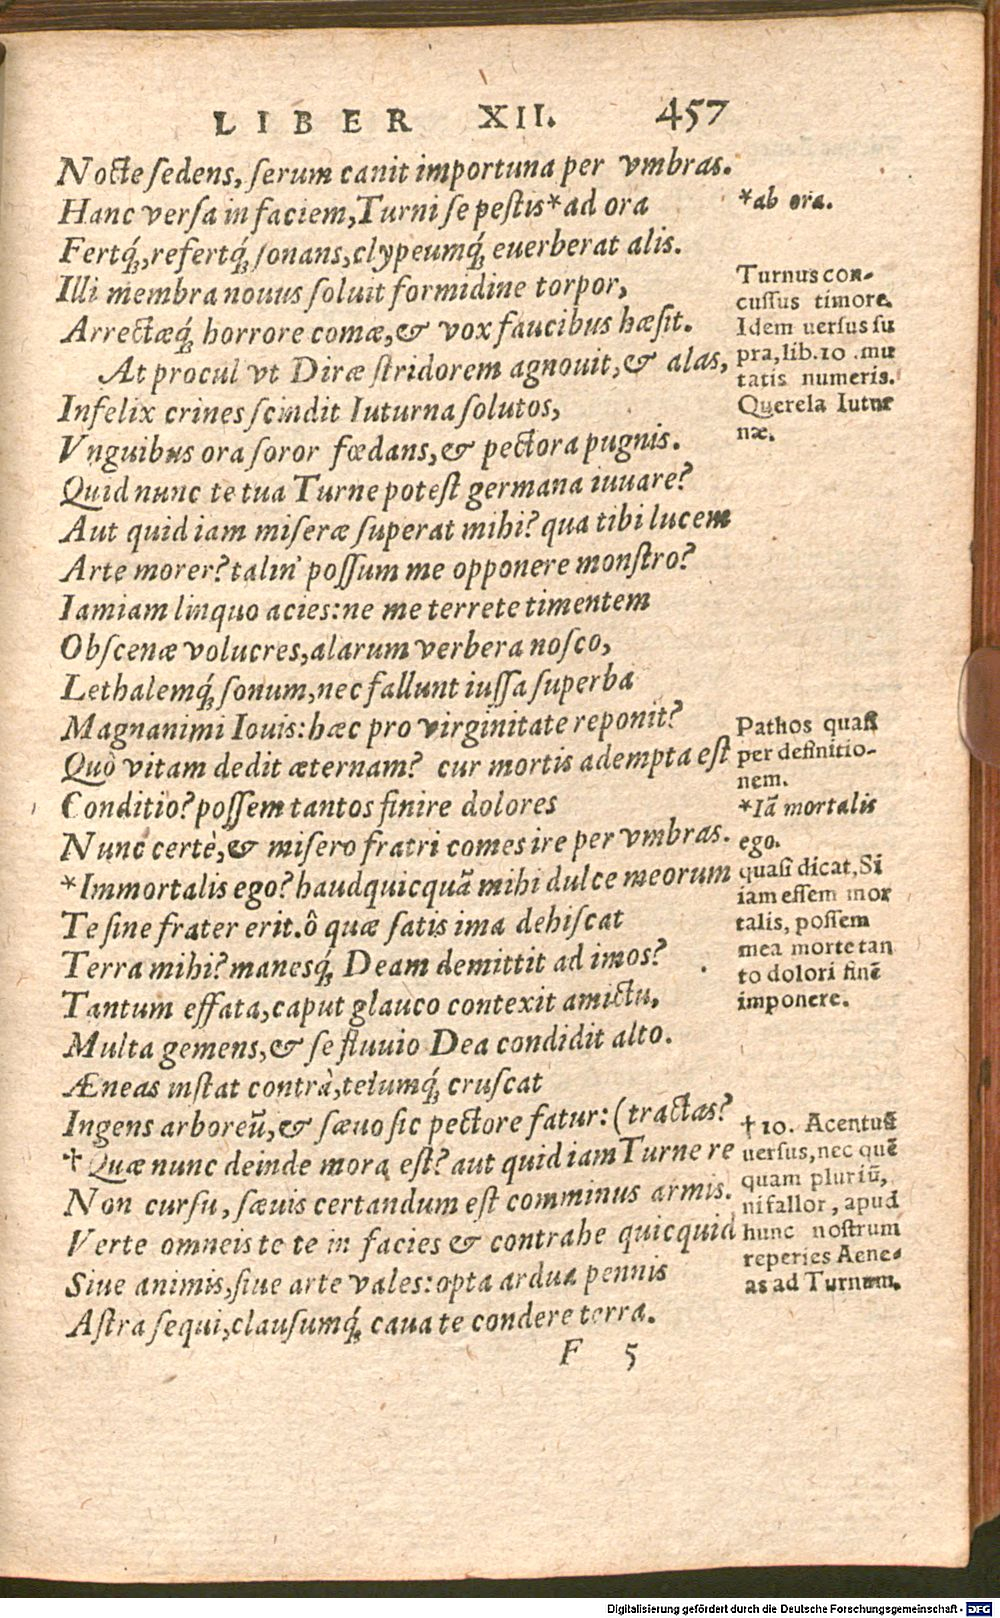 LIBER XII. 457
Nocte sedens, serum canit importuna per vmbras.
Hanc versa in faciem, Turni se pestis* ad ora
Fertq́;, refertq́; sonans, clypeumq́; euerberat alis.
Illi membra nouus soluit formidine torpor,
Arrectæq́; horrore comæ, & vox faucibus hæsit.
At procul vt Diræ stridorem agnouit, & alas,
Infelix crines scindit Iuturna solutos,
Vnguibus ora soror fœdans, & pectora pugnis.
Quid nunc te tua Turne potest germana iuuare?
Aut quid iam miseræ superat mihi? qua tibi lucem
Arte morer? talin' possum me opponere monstro?
Iamiam linquo acies: ne me terrete timentem
Obscenæ volucres, alarum verbera nosco,
Lethalemq́; sonum, nec fallunt iussa superba
Magnanimi Iouis: hæc pro virginitate reponit?
Quò vitam dedit æternam? cur mortis adempta est
Conditio? possem tantos finire dolores
Nunc certè, & misero fratri comes ire per vmbras.
*Immortalis ego? haudquicquã mihi dulce meorum
Te sine frater erit. ô quæ satis ima dehiscat
Terra mihi? manesq́; Deam demittit ad imos?
Tantum effata, caput glauco contexit amictu,
Multa gemens, & se fluuio Dea condidit alto.
Æneas instat contrà, telumq́; cruscat
Ingens arboreũ, & sæuo sic pectore fatur: (tractas?
† Quæ nunc deinde mora est? aut quid iam Turne re
Non cursu, sæuis certandum est comminus armis.
Verte omneis te te in facies & contrahe quicquid
Siue animis, siue arte vales: opta ardua pennis
Astra sequi, clausumq́; caua te condere terra.
F 5
*ab ora.
Turnus con-
cussus timore.
Idem uersus su
pra, lib. 10 .mu
tatis numeris.
Querela Iutur
næ.
Pathos quasi
per definitio-
nem.
*Iã mortalis
ego.
quasi dicat, Si
iam essem mor
talis, possem
mea morte tan
to dolori finẽ
imponere.
† 10. Acentuũ
uersus, nec quẽ
quam pluriũ,
ni fallor, apud
hunc nostrum
reperies Aene-
as ad Turnum.
Digitalisierung gefördert durch die Deutsche Forschungsgemeinschaft - DFG